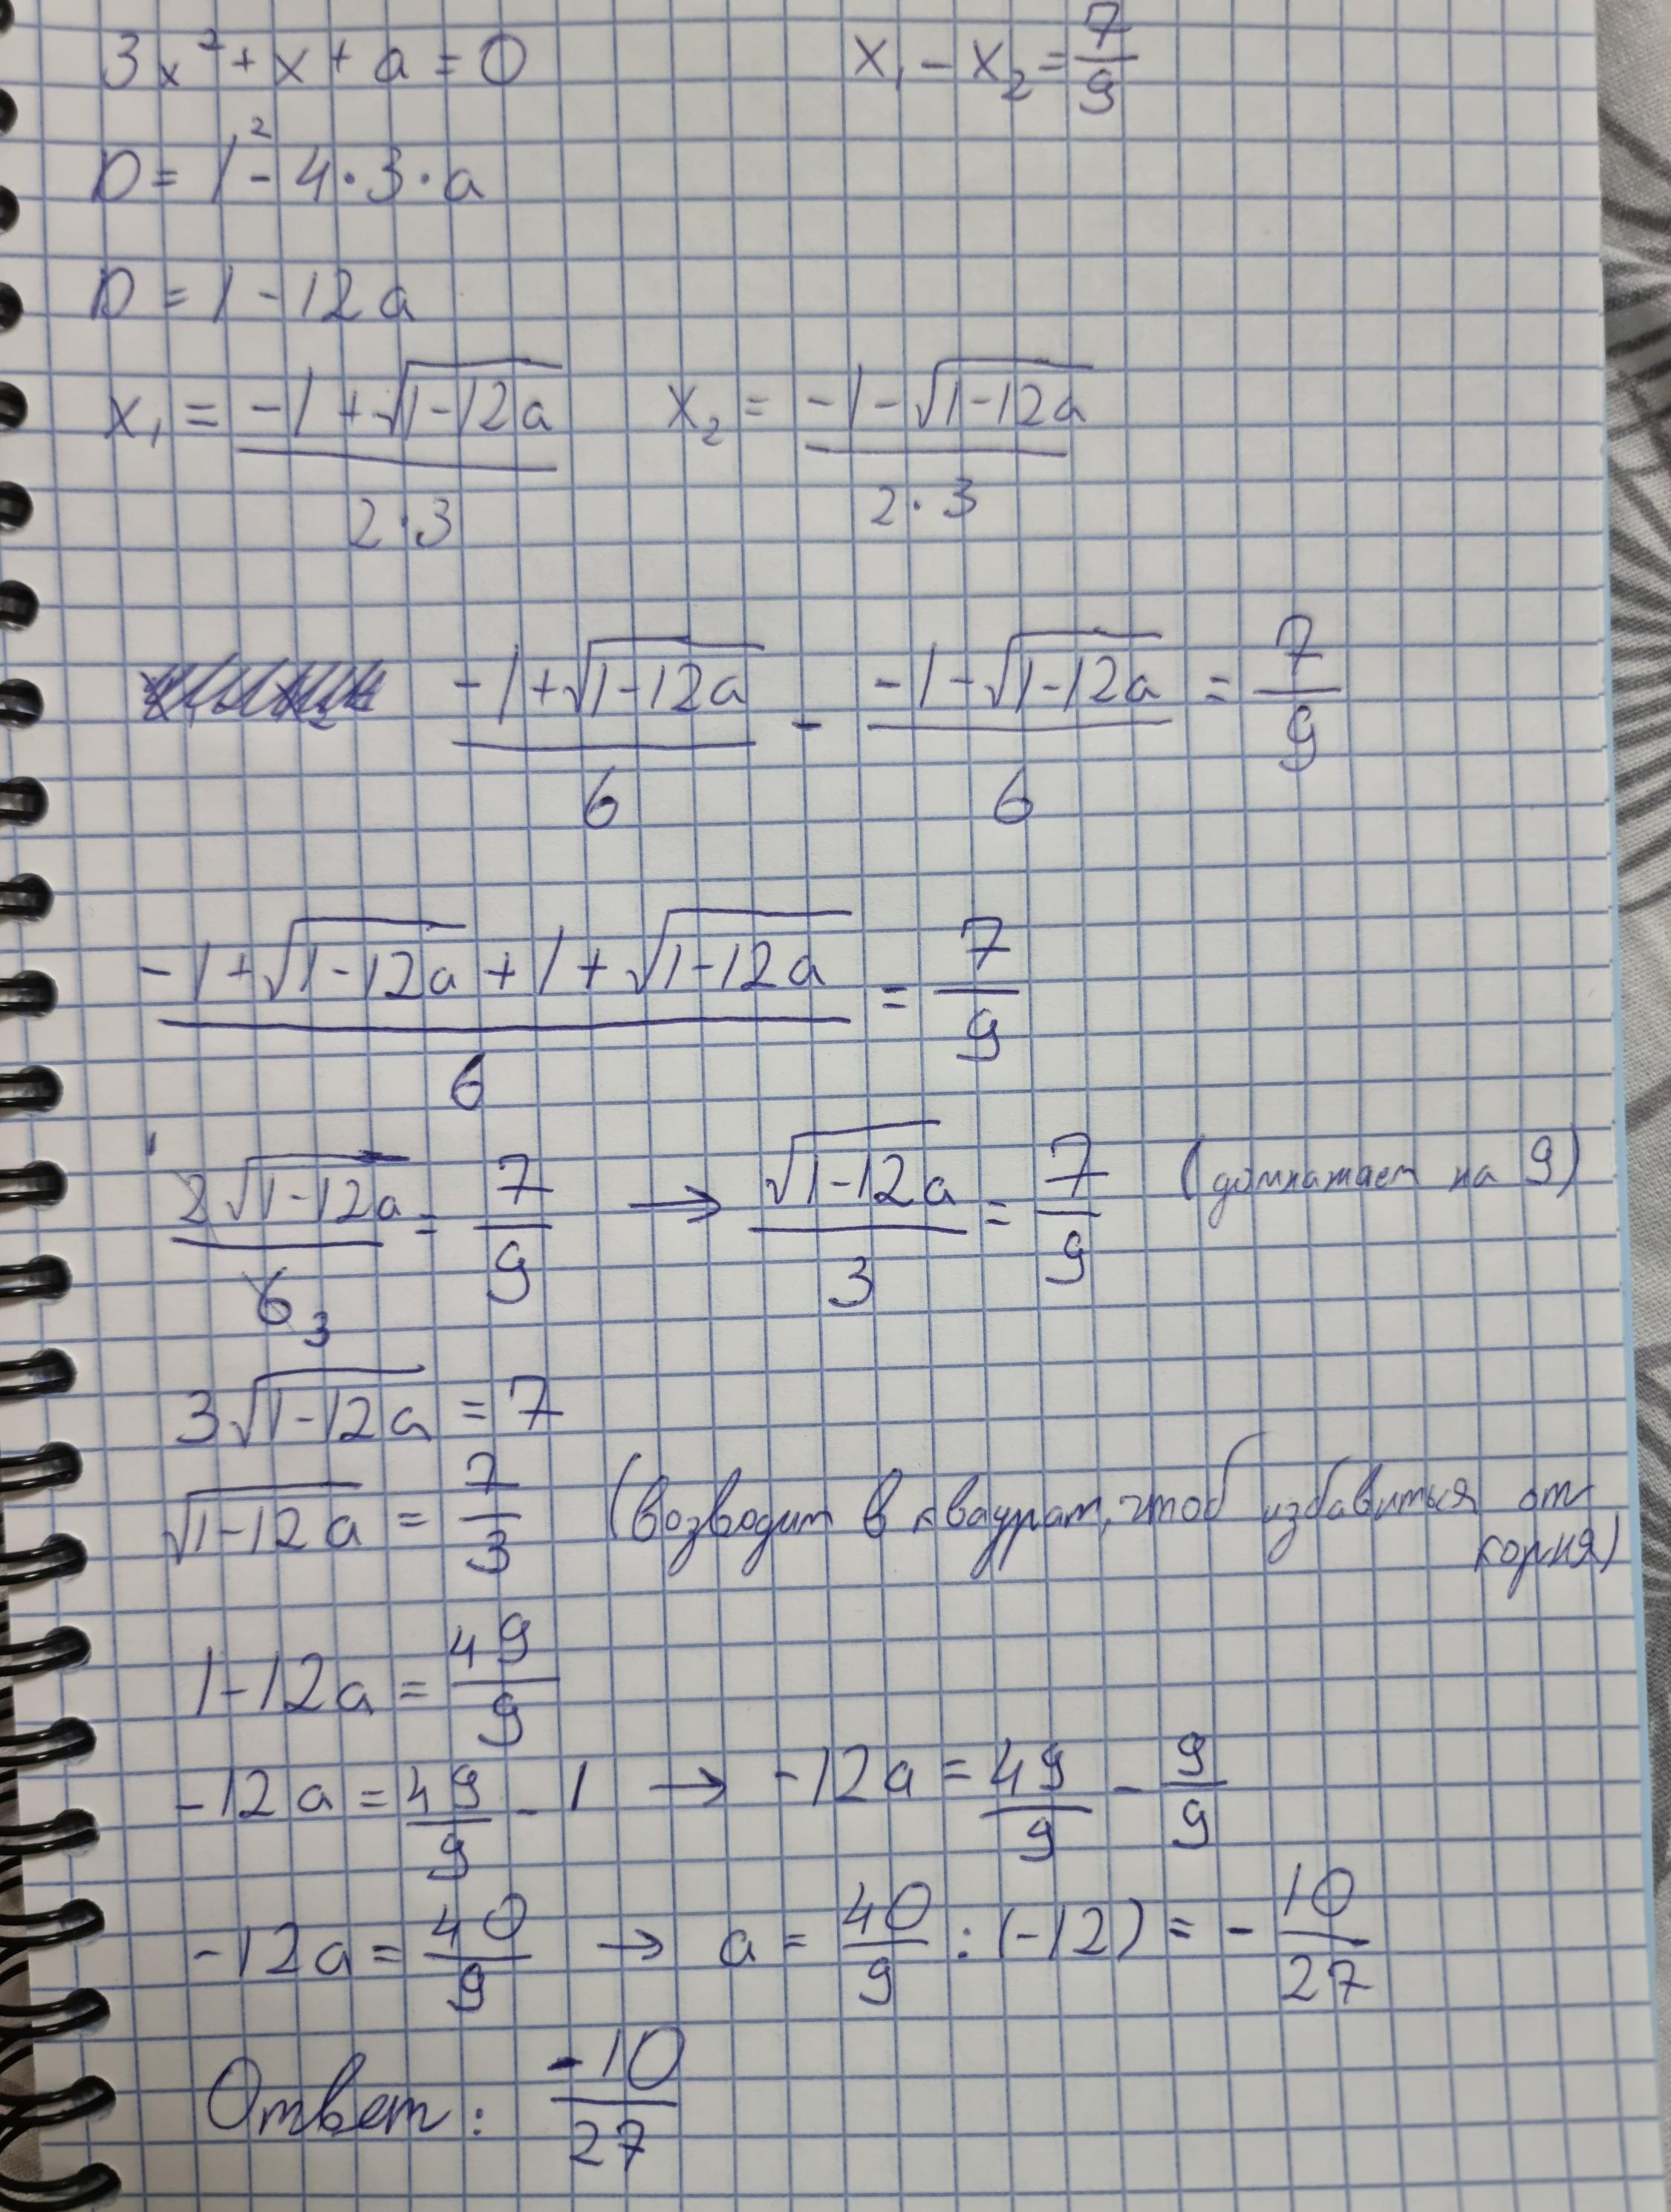 3x² + x + a = 0        x₁ - x₂ = 7/9
D = 1² - 4·3·a
D = 1 - 12a
x₁ = (-1 + √(1-12a))/(2·3)    x₂ = (-1 - √(1-12a))/(2·3)
(-1 + √(1-12a))/6 - (-1 - √(1-12a))/6 = 7/9
(-1 + √(1-12a) + 1 + √(1-12a))/6 = 7/9
2√(1-12a)/6 3 = 7/9 → √(1-12a)/3 = 7/9 (домнажаем на 9)
3√(1-12a) = 7
√(1-12a) = 7/3 (возводим в квадрат, чтоб избавиться от
корня)
1 - 12a = 49/9
-12a = 49/9 - 1 → -12a = 49/9 - 9/9
-12a = 40/9 → a = 40/9 : (-12) = - 10/27
Ответ: -10/27